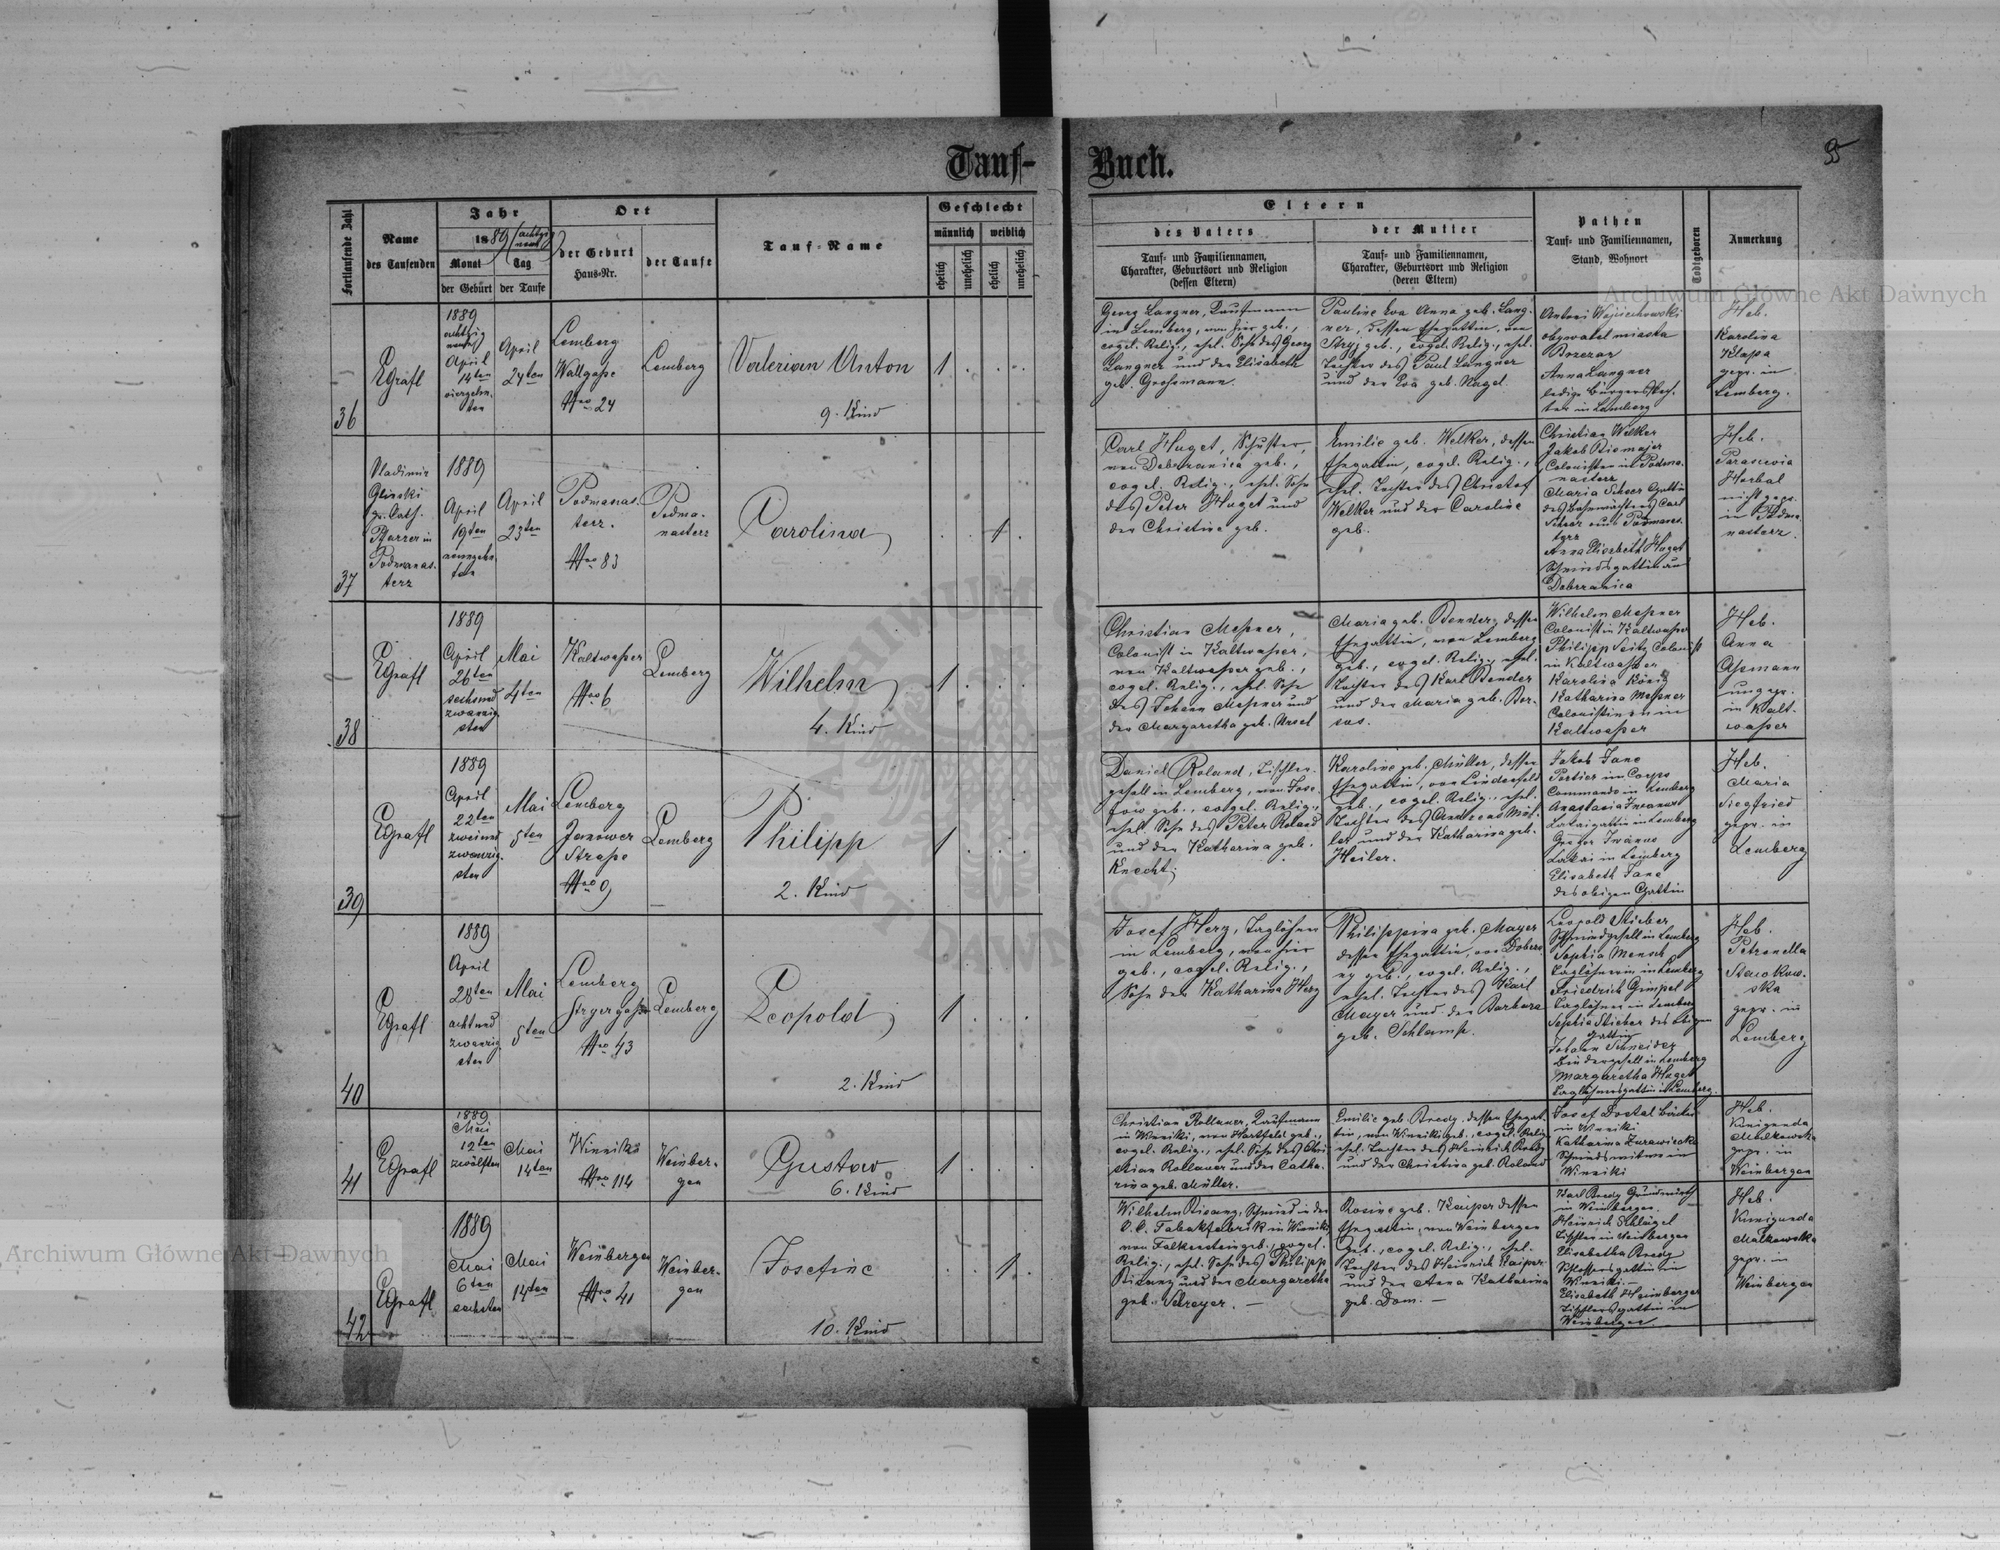 Tauf-
Buch.
95
Fortlaufende Zahl
Name
des Taufenden
Jahr
1889 (achtzig
neun)
Monat
Tag
der Geburt
der Taufe
Ort
der Geburt
Haus-Nr.
der Taufe
Tauf-Name
Geschlecht
männlich
weiblich
ehelich
unehelich
ehelich
unehelich
Eltern
des Vaters
Tauf- und Familiennamen,
Charakter, Geburtsort und Religion
(dessen Eltern)
der Mutter
Tauf- und Familiennamen,
Charakter, Geburtsort und Religion
(deren Eltern)
Pathen
Tauf- und Familiennamen,
Stand, Wohnort
Todtgeboren
Anmerkung
36
EGrafl
1889
achtzig
neun
April
14ten
vierzehn-
ten
April
24ten
Lemberg
Wallgasse
Nro 24
Lemberg
Valerian Anton
9. Kind
1
Georg Langner, Kaufmann
in Lemberg, von hier geb.,
evgel. Relig., ehel. Sohn des Georg
Langner und der Elisabeth
geb. Grossmann.
Pauline Eva Anna geb. Lang-
ner, dessen Ehegattin, von
Stryj geb., evgel. Relig., ehel.
Tochter des Paul Langner
und der Eva geb. Nagel.
Antoni Wojciechowski
obywatel miasta
Anna Langner
ledige Bürgerstoch-
ter in Lemberg
Heb.
Karolina
Klapa
gepr. in
Lemberg.
37
Vladimir
Glinski
gr. Cath.
Pfarrer in
Podmanas-
terz
1889
April
19ten
neunzehn-
ten
April
23ten
Podmanas-
terz.
Nro 83
Podma-
nasterz
Carolina
1
Carl Huget, Schuster,
von Dobrzanica geb.,
evgel. Relig., ehel. Sohn
des Peter Huget und
der Christine geb.
Emilie geb. Welker, dessen
Ehegattin, evgel. Relig.,
ehel. Tochter des Christof
Welker und der Caroline
geb.
Christian Welker
Jakob Bismajer
Colonisten in Podma-
nasterz
Maria Scherr Gattin
des Bahnwächters Carl
Scherr aus Podmanas-
terz
Anna Elisabeth Huget
Schmiedsgattin aus
Dobrzanica
Heb.
Paraskwia
Horbal
nicht gepr.
in Podma-
nasterz.
38
EGrafl
1889
April
26ten
sechsund
zwanzig-
sten
Mai
4ten
Kaltwasser
Nro 6
Lemberg
Wilhelm
4. Kind
1
Christian Messner,
Colonist in Kaltwasser,
von Kaltwasser geb.,
evgel. Relig., ehel. Sohn
des Johann Messner und
der Margaretha geb. Ursel
Maria geb. Bender, dessen
Ehegattin, von Lemberg
geb., evgel. Relig., ehel.
Tochter des Karl Bender
und der Maria geb. Bor-
sos.
Wilhelm Messner
Colonist in Kaltwasser
Philipp Seitz Colonist
in Kaltwasser
Karolina König
Katharina Messner
Colonistinen in
Kaltwasser
Heb.
Anna
Assmann
ungepr.
in Kalt-
wasser
39
EGrafl
1889
April
22ten
zweiund
zwanzig-
sten
Mai
5ten
Lemberg
Janower
Strasse
Nro 9
Lemberg
Philipp
2. Kind
1
Daniel Roland, Tischler-
gesell in Lemberg, von Jose-
fow geb., evgel. Relig.,
ehel. Sohn des Peter Roland
und der Katharina geb.
Knecht.
Karoline geb. Müller, dessen
Ehegattin, von Lindenfeld
geb., evgel. Relig., ehel.
Tochter des Andreas Mül-
ler und der Katharina geb.
Heiler.
Jakob Jane
Portier im Corps
Commando in Lemberg
Anastasia Iwanus
Lakaigattin in Lemberg
Iwanus
Lakai in Lemberg
Elisabeth Jane
des obigen Gattin
Heb.
Maria
Siegfried
gepr. in
Lemberg
40
EGrafl
1889
April
28ten
achtund
zwanzig-
sten
Mai
5ten
Lemberg
Stryergasse
Nro 43
Lemberg
Leopold
2. Kind
1
Josef Herz, Taglöhner
in Lemberg, von hier
geb., evgel. Relig.,
Sohn der Katharina Herz
Philippina geb. Mayer
dessen Ehegattin, von Dobrza-
ny geb., evgel. Relig.,
ehel. Tochter des Karl
Mayer und der Barbara
geb. Schlamp.
Leopold Stieber
Schmiedgesell in Lemberg
Sophia Mensch
Taglöhnerin in Lemberg
Friedrich Gimpel
Taglöhner in Lemberg
Sophia Stieber des obigen
Gattin
Johann Schneider
Bindergesell in Lemberg
Margaretha Huget
Taglöhnersgattin in Lemberg.
Heb.
Petronella
Stawkow-
ska
gepr. in
Lemberg
41
EGrafl
1889
Mai
12ten
zwölften
Mai
14ten
Winniki
Nro 114
Weinber-
gen
Gustav
6. Kind
1
Christian Rollauer, Kaufmann
in Winniki, von Hartfeld geb.,
evgel. Relig., ehel. Sohn des Chri-
stian Rollauer und der Catha-
rina geb. Müller.
Emilie geb. Bredy, dessen Ehegat-
tin, von Winniki geb., evgel. Relig.
ehel. Tochter des Heinrich Bredy
und der Christina geb. Roland
Josef Dostal Bäcker
in Winniki
Katharina Zurawiecka
Schmiedswitwe in
Winniki
Heb.
Kunigunda
Malkowska
gepr. in
Weinbergen
42
EGrafl
1889
Mai
6ten
sechsten
Mai
14ten
Weinbergen
Nro 41
Weinber-
gen
Josefine
10. Kind
1
Wilhelm Bisanz, Schmied in der
k.k. Tabakfabrik in Winniki
von Falkenstein geb., evgel.
Relig., ehel. Sohn des Philipp
Bisanz und der Margaretha
geb. Schreyer. —
Rosine geb. Kaiper dessen
Ehegattin, von Weinbergen
geb., evgel. Relig., ehel.
Tochter des Heinrich Kaiper
und der Anna Katharina
geb. Dom. —
Karl Bredy Grundwirth
in Weinbergen.
Heinrich Schlägel
Tischler in Weinbergen
Elisabetha Bredy
Schlossersgattin in
Winniki. —
Elisabeth Heimberger
Tischlersgattin in
Weinbergen.
Heb.
Kunigunda
Malkowska
gepr. in
Weinbergen
Archiwum Główne Akt Dawnych
Archiwum Główne Akt Dawnych